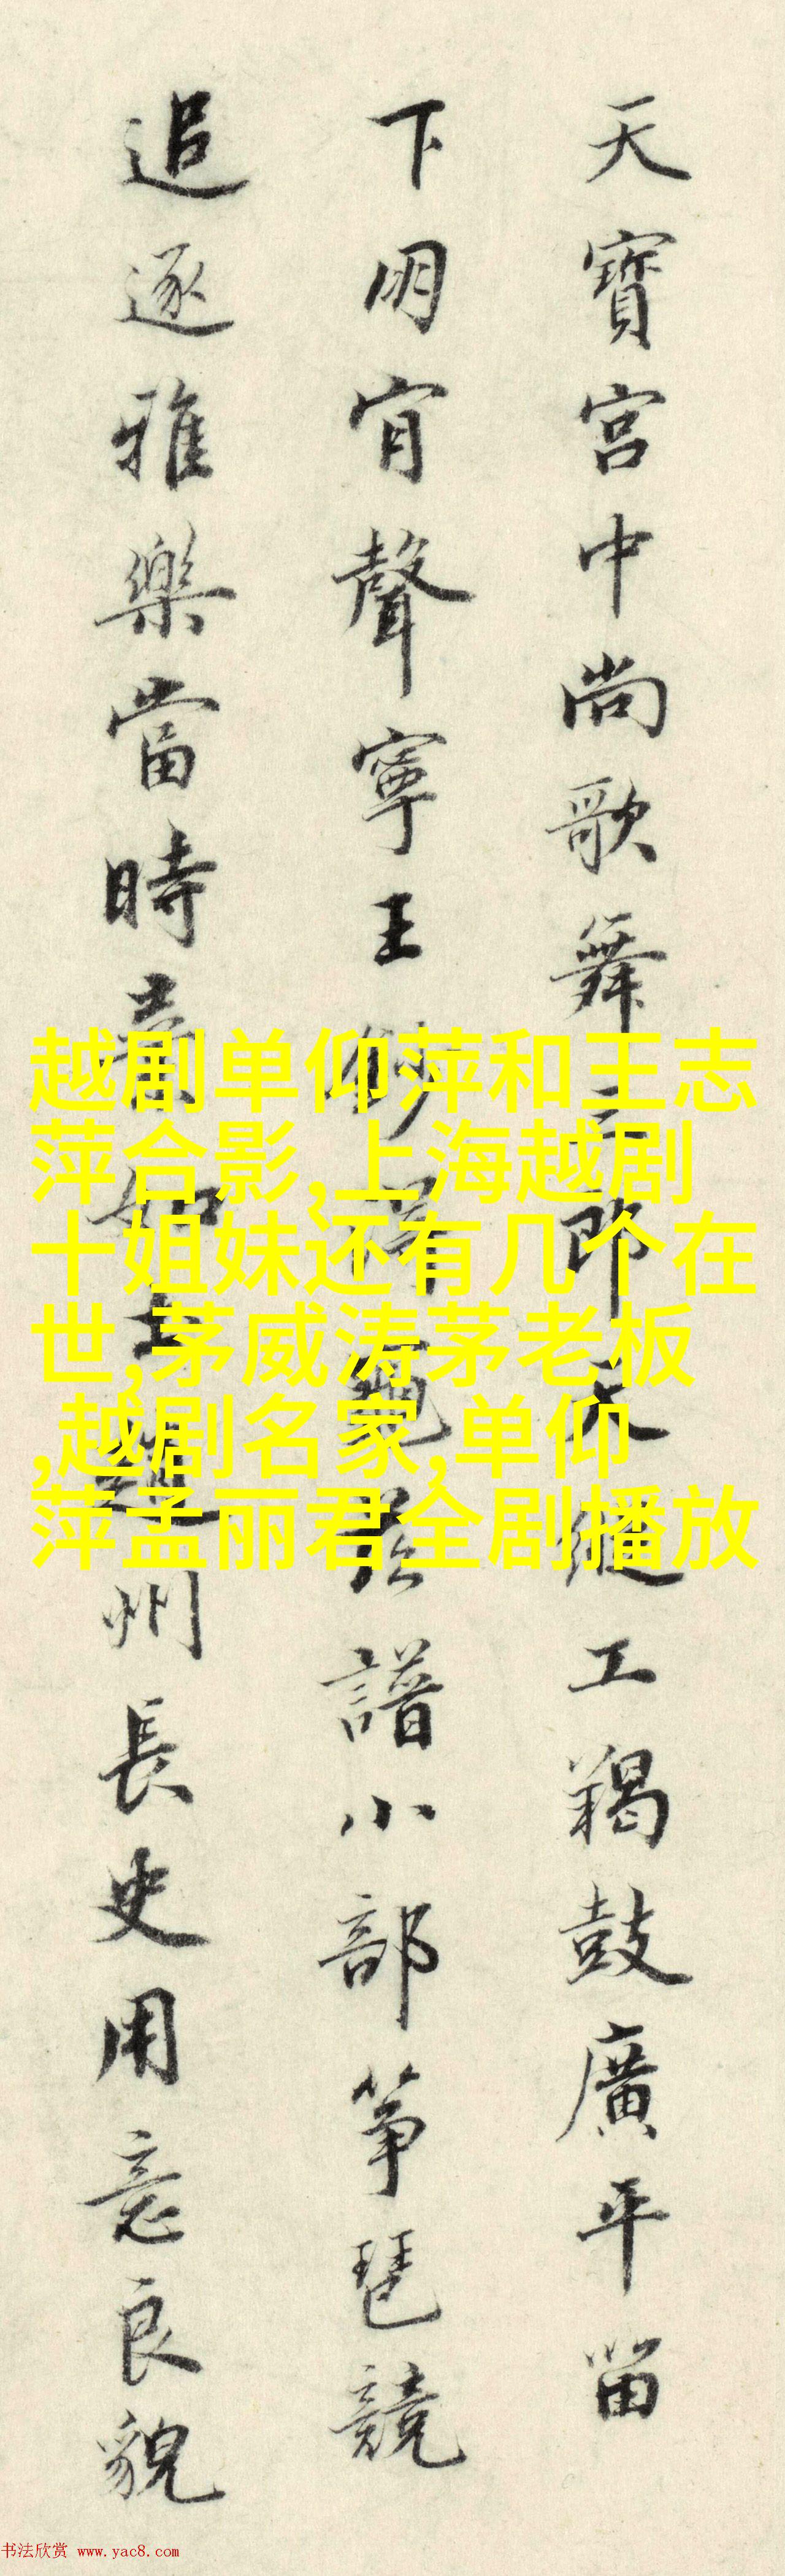 天寶宮中尚歌舞三郎天縱工羯鼓廣平留
下朋肎聲寧王妙得龜茲譜小部箏琶競
追逐雅樂當時棄如土州長史用意良貌
越剧单仰萍和王志
萍合影,上海越剧
十姐妹还有几个在
世,茅威涛茅老板
,越剧名家,单仰
萍孟丽君全剧播放
书法欣赏 www.yac8.com